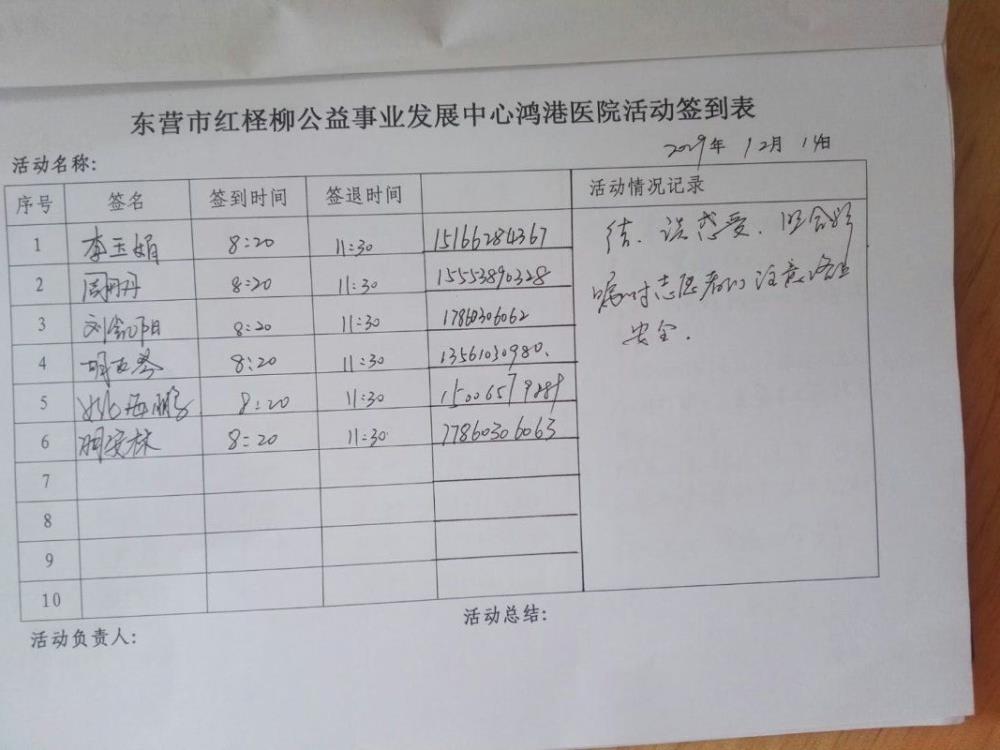 东营市红柽柳公益事业发展中心鸿港医院活动签到表
2019年 12月 14日
活动名称:
序号 签名 签到时间 签退时间 活动情况记录
1 李玉娟 8:20 11:30 15166284367
2 周丹丹 8:20 11:30 15553890328
3 刘 阳 8:20 11:30 17860306062
4 胡 琴 8:20 11:30 13561030980.
5 姚海鹏 8:20 11:30 15006579289
6 胡安林 8:20 11:30 17860306063
7
8
9
10
结、谈感受、
嘱咐志愿者们注意路上
安全.
活动负责人:
活动总结: